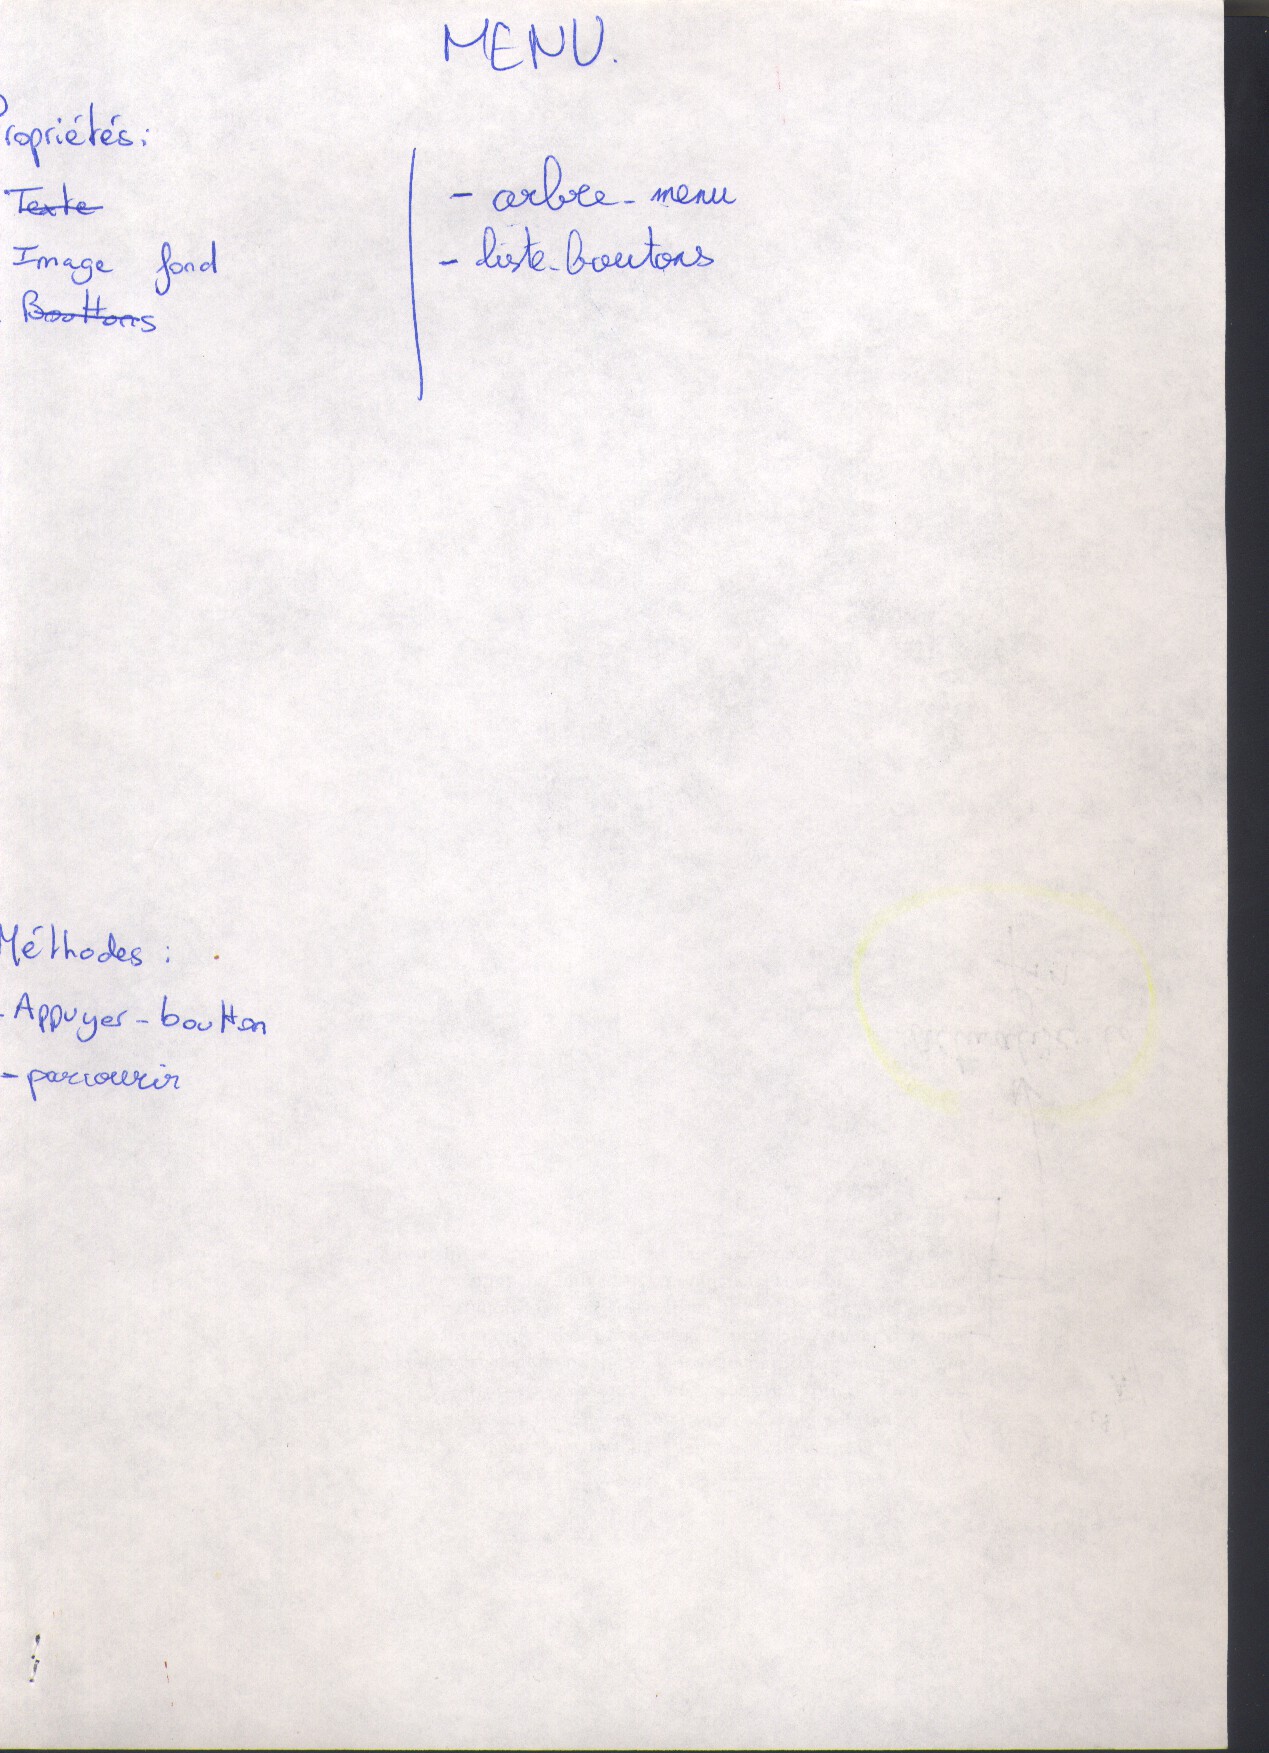 MENU.
Propriétés:
Texte
Image fond
Bouttons
- arbre_menu
- liste_boutons
Méthodes :
- Appuyer_boutton
- parcourir